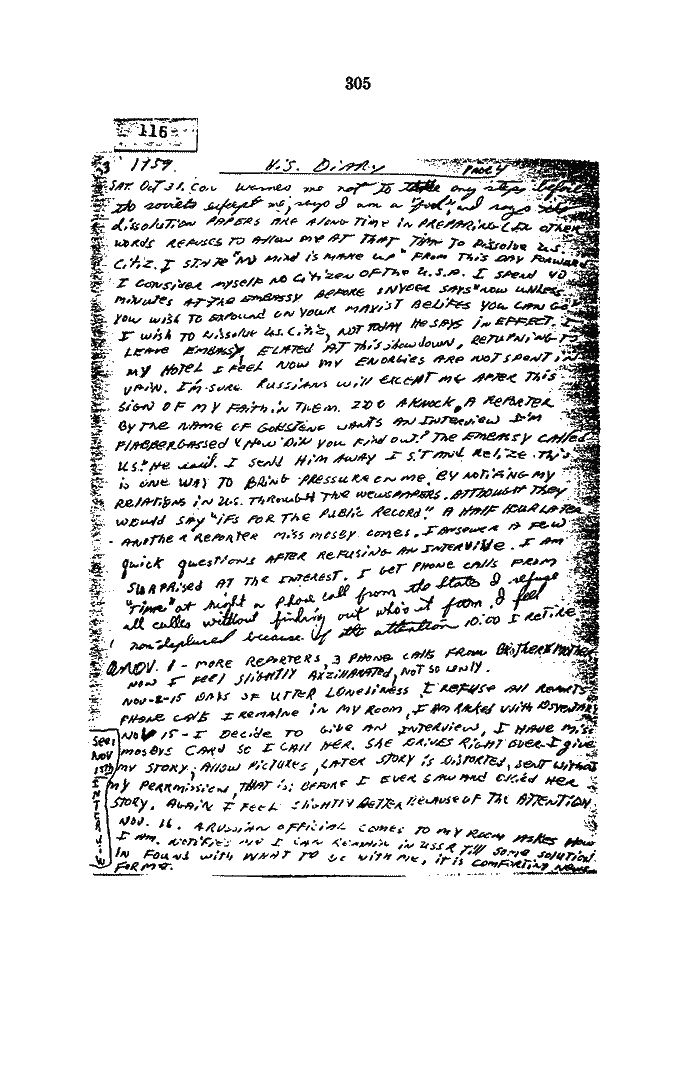 305
116
3 1959. H.S. DIARY PAGE 4
SAT. OCT 31. CON. warnes me not to take any steps before
the soviets except me, says I am a "fool", and says the
dissolution PAPERS ARE A LONG TIME IN PREPARING (IN other
WORDS REFUSES TO ALLOW ME AT THAT TIME TO DISSOLVE U.S.
CITIZ. I STATE "MY MIND IS MAKE UP" FROM THIS DAY FORWARD
I CONSIDER MYSELF NO CITIZEN OF THE U.S.A. I SPEND 40
MINUTES AT THE EMBASSY BEFORE SNYDER SAYS "NOW UNLESS
YOU WISH TO EXPOUND ON YOUR MAXIST BELIFES YOU CAN GO
I WISH TO DISSOLVE U.S. CITIZ, NOT TODAY HE SAYS IN EFFECT. I
LEAVE EMBASSY, ELATED AT THIS showdown, RETURNING TO
MY HOTEL I FEEL NOW MY ENORGIES ARE NOT SPENT IN
VAIN. I'M SURE RUSSIANS WILL EXCEPT ME AFTER THIS
SIGN OF MY FAITH IN THEM. 2:00 A KNOCK, A REPORTER
BY THE NAME OF GOLDSTENE WANTS AN INTERVIEW I'M
FLABBERGASSED "HOW DID YOU FIND OUT?" THE EMBASSY CALLED
US." HE said. I SEND HIM AWAY I SIT AND RELIZE THIS
IS ONE WAY TO BRING PRESSURE ON ME. BY NOTIFING MY
RELATIONS IN U.S. THROUGH THE NEWSPAPERS. ALTHOUGH THEY
WOULD SAY "ITS FOR THE PUBLIC RECORD." A HALF HOUR LATER
ANOTHER REPORTER MISS MOSBY COMES. I ANSWER A FEW
quick questions AFTER REFUSING AN INTERVIWE. I AM
SURPRISED AT THE INTEREST. I GET PHONE CALLS FROM
"Time" at night a phone call from the States I refuse
all calles without finding out who's it from. I feel
non-deplused because of the attention 10:00 I RETIRE
NOV. 1 - MORE REPORTERS, 3 PHONE CALLS FROM BROTHER & MOTHER
NOW I FEEL SLIGHTLY AXZILARATED, NOT SO LONLY.
NOV-2-15 DAYS OF UTTER LONELINESS I REFUSE All REPORTS
PHONE CALLS I REMAINE IN MY ROOM, I AM RACKED WITH DSYENTARY
NOV 15 - I DECIDE TO GIVE AN INTERVIEW, I HAVE MISS
MOSBYS CARD SO I CALL HER. SHE DRIVES RIGHT OVER. I give
MY STORY, ALLOW PICTURES, LATER STORY IS DISTORTED, SENT WITHOUT
MY PERRMISSION, THAT IS: BEFORE I EVER SAW AND OK'ED HER
STORY. AGAIN I FEEL SLIGHTLY BETTER BECAUSE OF THE ATTENTION
NOV. 16. A RUSSIAN OFFICIAL COMES TO MY ROOM ASKES HOW
I AM. NOTIFIES ME I CAN REMAIN IN USSR TILL SOME SOLUTION
IN FOUND WITH WHAT TO DO WITH ME, IT IS COMFORTING NEWS
FOR ME.
SEE:
NOV
15TH
INTERVIEW